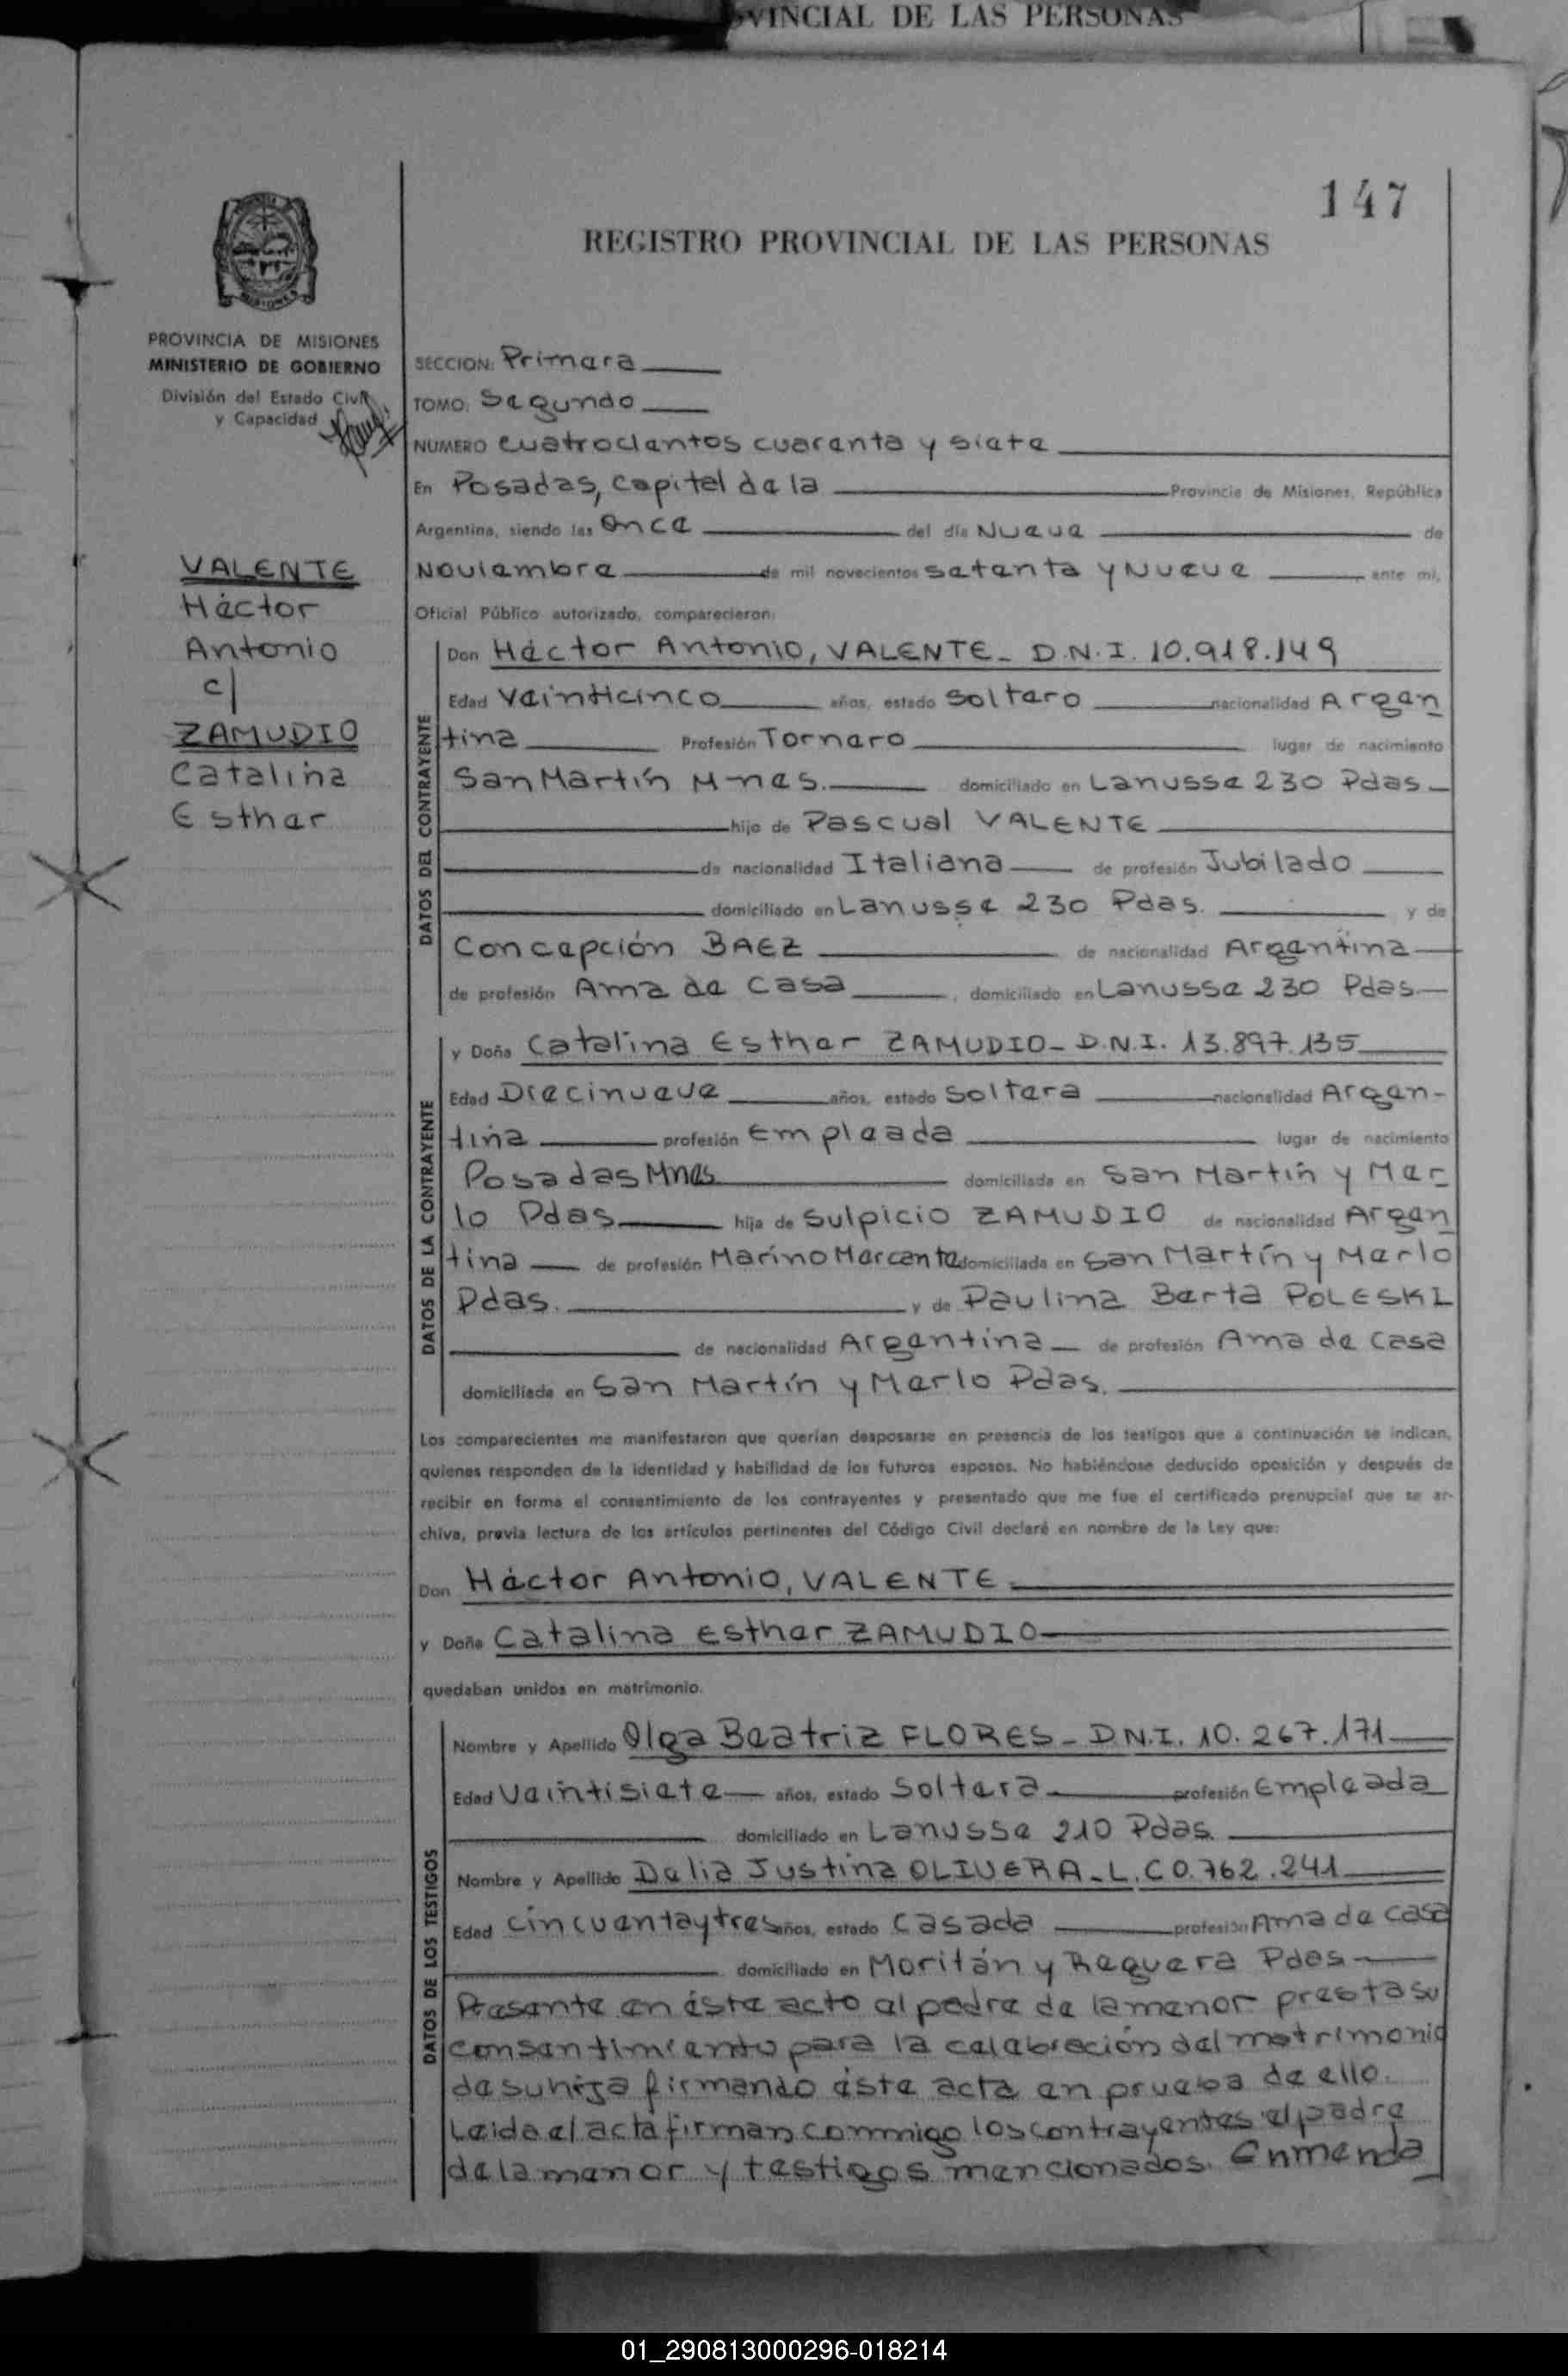 VINCIAL DE LAS PERSONAS
147
REGISTRO PROVINCIAL DE LAS PERSONAS
MISIONES
PROVINCIA DE MISIONES
MINISTERIO DE GOBIERNO
División del Estado Civil
y Capacidad
VALENTE
Héctor
Antonio
c/
ZAMUDIO
Catalina
Esther
SECCION: Primera
TOMO: Segundo
NUMERO cuatrocientos cuarenta y siete
En Posadas, Capital de la Provincia de Misiones, República
Argentina, siendo las Once del día Nueve de
Noviembre de mil novecientos setenta y Nueve ante mi,
Oficial Público autorizado, comparecieron:
DATOS DEL CONTRAYENTE
Don Héctor Antonio, VALENTE - D.N.I. 10.918.149
Edad Veinticinco años, estado soltero nacionalidad Argen
tina Profesión Tornero lugar de nacimiento
San Martín Mnes. domiciliado en Lanusse 230 Pdas
hijo de Pascual VALENTE
de nacionalidad Italiana de profesión Jubilado
domiciliado en Lanusse 230 Pdas. y de
Concepción BAEZ de nacionalidad Argentina
de profesión Ama de Casa, domiciliado en Lanusse 230 Pdas.
DATOS DE LA CONTRAYENTE
y Doña Catalina Esther ZAMUDIO - D.N.I. 13.897.135
Edad Diecinueve años, estado soltera nacionalidad Argen-
tina profesión Empleada lugar de nacimiento
Posadas Mnes domiciliada en San Martín y Mer-
lo Pdas hija de Sulpicio ZAMUDIO de nacionalidad Argen
tina de profesión Marino Mercante domiciliada en San Martín y Merlo
Pdas. y de Paulina Berta POLESKI
de nacionalidad Argentina de profesión Ama de casa
domiciliada en San Martín y Merlo Pdas.
Los comparecientes me manifestaron que querían desposarse en presencia de los testigos que a continuación se indican,
quienes responden de la identidad y habilidad de los futuros esposos. No habiéndose deducido oposición y después de
recibir en forma el consentimiento de los contrayentes y presentado que me fue el certificado prenupcial que se ar-
chiva, previa lectura de los artículos pertinentes del Código Civil declaré en nombre de la Ley que:
Don Héctor Antonio, VALENTE
y Doña Catalina Esther ZAMUDIO
quedaban unidos en matrimonio.
DATOS DE LOS TESTIGOS
Nombre y Apellido Olga Beatriz FLORES - D.N.I. 10.267.171
Edad Veintisiete años, estado Soltera profesión Empleada
domiciliado en Lanusse 210 Pdas.
Nombre y Apellido Delia Justina OLIVERA - L.C 0.762.241
Edad cincuenta y tres años, estado casada profesión Ama de casa
domiciliado en Moritán y Reguera Pdas
Presente en éste acto el padre de la menor presta su
consentimiento para la celebración del matrimonio
de su hija firmando éste acta en prueba de ello.
Leida el acta firman conmigo los contrayentes el padre
de la menor y testigos mencionados. Enmenda
01_290813000296-018214